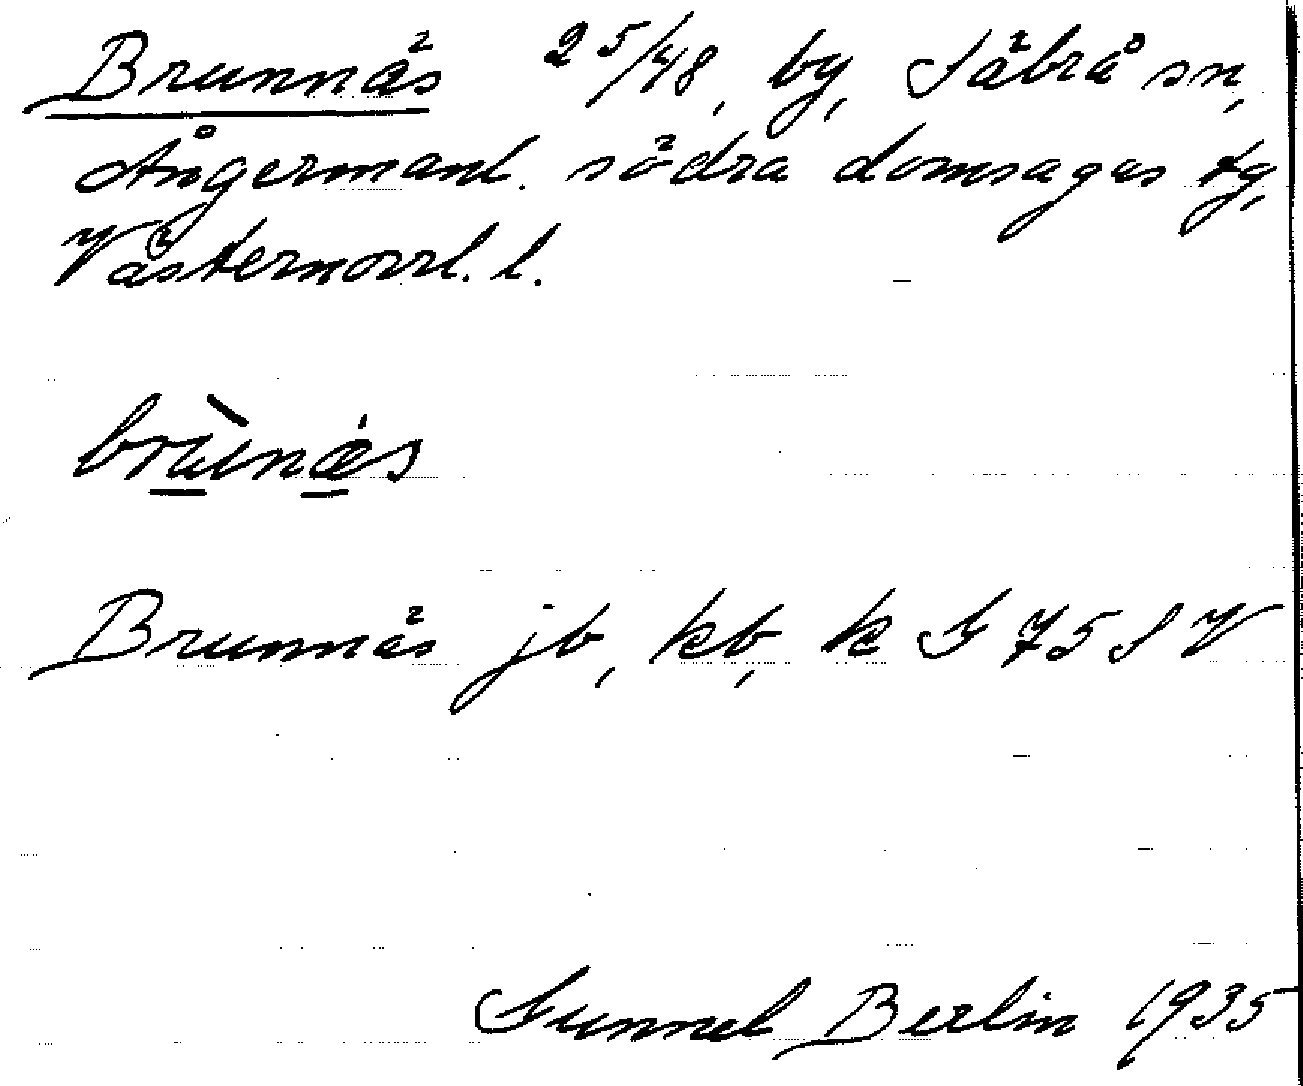 Brunnäs 2 5/48, by, Säbrå sn,
Ångermanl. södra domsagas tg,
Västernorrl. l.
brùnǽs
Brunnäs jb, kb, k G 75 S V
Gunnel Berlin 1935